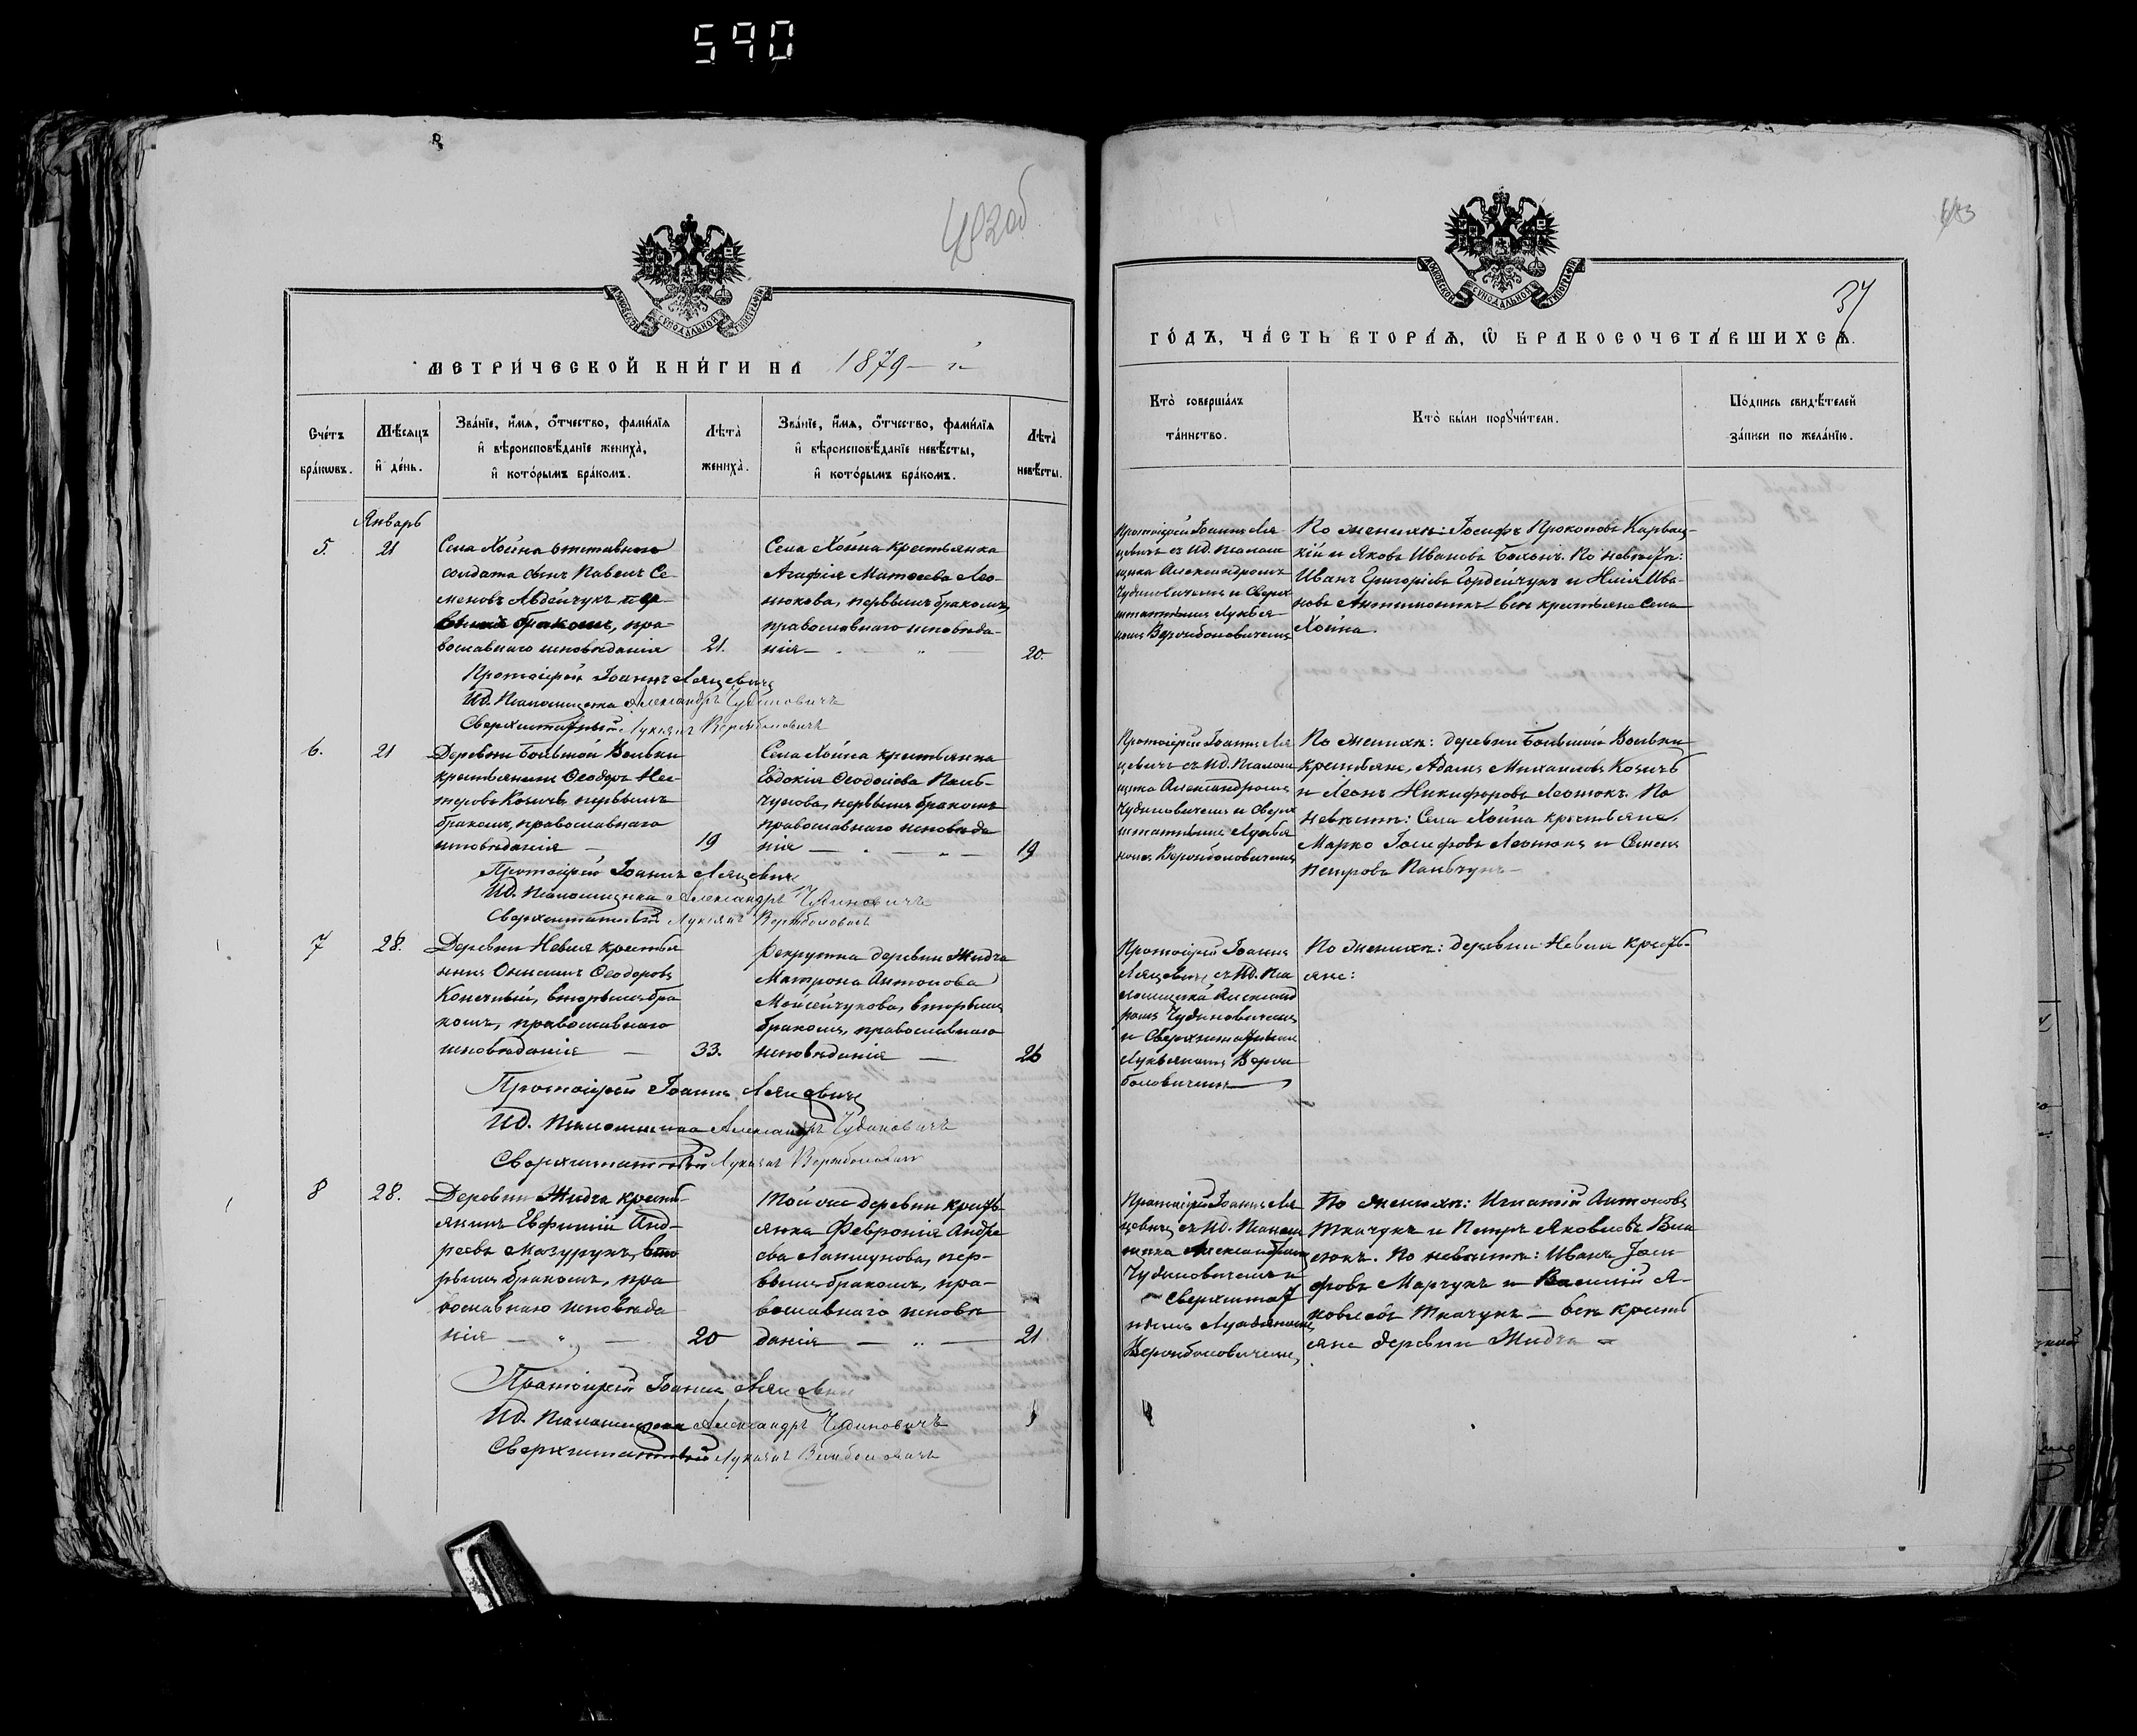 590
482 об
МЕТРИ́ЧЕСКОЙ КНИ́ГИ НА 1879-й
Сче́тъ бра́кѡвъ.
Мѣ́сяцъ и҆ де́нь.
Зва́нїе, и҆́мѧ, о҆́тчество, фами́лїѧ
и҆ вѣроисповѣ́данїе жениха̀,
и҆ кото́рымъ бра́комъ.
Лѣта̀ жениха̀.
Зва́нїе, и҆́мѧ, о҆́тчество, фами́лїѧ
и҆ вѣроисповѣ́данїе невѣ́сты,
и҆ кото́рымъ бра́комъ.
Лѣта̀ невѣ́сты.
Январь
5. 21
Села Хойна отставнаго
солдата сынъ Павелъ Се-
меновъ Авдейчукъ пер-
вымъ бракомъ, пра-
вославнаго исповѣданія
21.
Села Хойна крестьянка
Агафія Матѳеева Лео-
нюкова, первымъ бракомъ,
православнаго исповѣда-
нія
20.
Протоіерей Іоаннъ Ляцевичъ
ИД. Псаломщика Александръ Чудиновичъ
Сверхштатный Лукіянъ
6. 21
Деревни Большой Вольки
крестьянинъ Ѳеодоръ Нес-
теровъ Козичъ, первымъ
бракомъ, православнаго
исповѣданія
19
Села Хойна крестьянка
Евдокія Ѳеодосіева Панб-
чукова, первымъ бракомъ
православнаго исповѣда
нія
19
Протоіерей Іоаннъ Ляцевичъ
ИД. Псаломщика Александръ Чудиновичъ
Сверхштатный Лукіянъ
7 28.
Деревни Невля крестья
нинъ Онисимъ Ѳеодоровъ
Конечный, вторымъ бра
комъ, православнаго
исповѣданія
33.
Рекрутка деревни Жидча
Матрона Антонова
Мойсейчукова, вторымъ
бракомъ, православнаго
исповѣданія
26
Протоіерей Іоаннъ Ляцевичъ
ИД. Псаломщика Александръ Чудиновичъ
Сверхштатный Лукіянъ
8 28.
Деревни Жидча крестья-
янинъ Евфимій Анд-
реевъ Мазурукъ, вто
рымъ бракомъ, пра
вославнаго исповѣда
нія
20
Той же деревни кресть
янка Февронія Андре
ева Лапшукова, пер-
вымъ бракомъ, пра-
вославнаго исповѣ
данія
21
Протоіерей Іоаннъ Ляцевичъ
ИД. Псаломщика Александръ Чудиновичъ
Сверхштатный Лукіянъ
МОСКОВСКОЙ СѴНОДАЛЬНОЙ ТИПОГРАФІИ
37
ГО́ДЪ, ЧА́СТЬ ВТОРА́Ѧ, Ѡ҆ БРАКОСОЧЕТА́ВШИХСѦ.
Кто̀ соверша́лъ
та́инство.
Кто̀ бы́ли порꙋчи́тели.
По́дпись свидѣ́телей
за́писи по жела́нїю.
Протоіерей Іоаннъ Ля-
цевичъ съ ИД. Псалом
щика Александромъ
Чудиновичемъ и Сверх
штатнымъ Лукья-
номъ
По женихѣ: Іосифъ Прокоповъ Карвац-
кій и Яковъ Ивановъ По невѣстѣ:
Иванъ Григоріевъ Гордейчукъ и Илія Ива-
новъ все крестьяне Села
Хойна.
Протоіерей Іоаннъ Ля
цевичъ съ ИД. Псалом
щика Александромъ
Чудиновичемъ и Сверх
штатнымъ Лукья
номъ
По женихѣ: деревни Большой Вольки
крестьяне, Адамъ Михаиловъ Козичъ
и Леонъ Никифоровъ Леонюкъ. По
невѣстѣ: Села Хойна крестьяне,
Марко Іосифовъ Леонюкъ и Семенъ
Петровъ Панбчукъ
Протоіерей Іоаннъ
Ляцевичъ, съ ИД. Пса
ломщика Александ
ромъ Чудиновичемъ
и Сверхштатнымъ
Лукьяномъ
По женихѣ: деревни Невля кресть-
яне:
Протоіерей Іоаннъ Ля
цевичъ съ ИД. Псалом
щика Александромъ
Чудиновичемъ и
Сверхштат
нымъ Лукьяномъ
По женихѣ: Игнатій Антоновъ
Ткачукъ и Петръ Яковлевъ Вла
сюкъ. По невѣстѣ: Иванъ Іоси-
фовъ Марчукъ и Василій Я-
ковлевъ Ткачукъ — всѣ кресть
яне деревни Жидча